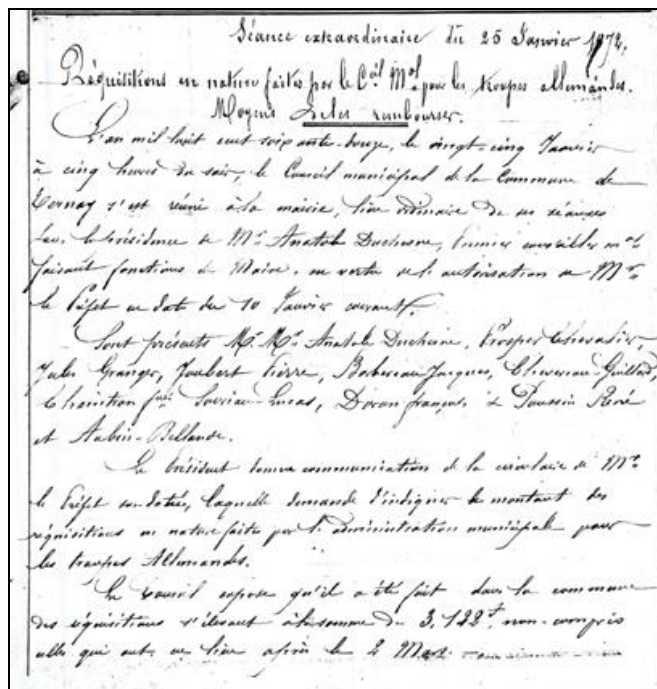 Séance extraordinaire du 25 Janvier 1872,
Réquisitions en nature faites par le C.al M.al pour les troupes allemandes.
Moyens de les rembourser.
L'an mil huit cent soixante-douze, le vingt-cinq Janvier
à cinq heures du soir, le Conseil municipal de la Commune de
Vernay s'est réuni à la mairie, lieu ordinaire de ses séances
sous la présidence de Mr Anatole Duchesne, premier conseiller m.al
faisant fonctions de Maire, en vertu de l'autorisation de Mr
le Préfet en date du 10 Janvier courant.
Sont présents M.rs Anatole Duchesne, Prosper Chevalier,
Jules Granger, Joubert Pierre, Barbereau Jacques, Chevereau-Guillard,
Lucas, Doron françois, Poussin René
et Aubin-Bellande.
Le Président donne communication de la circulaire de Mr
le Préfet sus datée, laquelle demande d'indiquer le montant des
réquisitions en nature faites par l'administration municipale pour
les troupes Allemandes.
Le Conseil expose qu'il a été fait dans la commune
des réquisitions s'élevant à la somme de 3,122f, non-compris
celles qui ont eu lieu après le 2 Mars